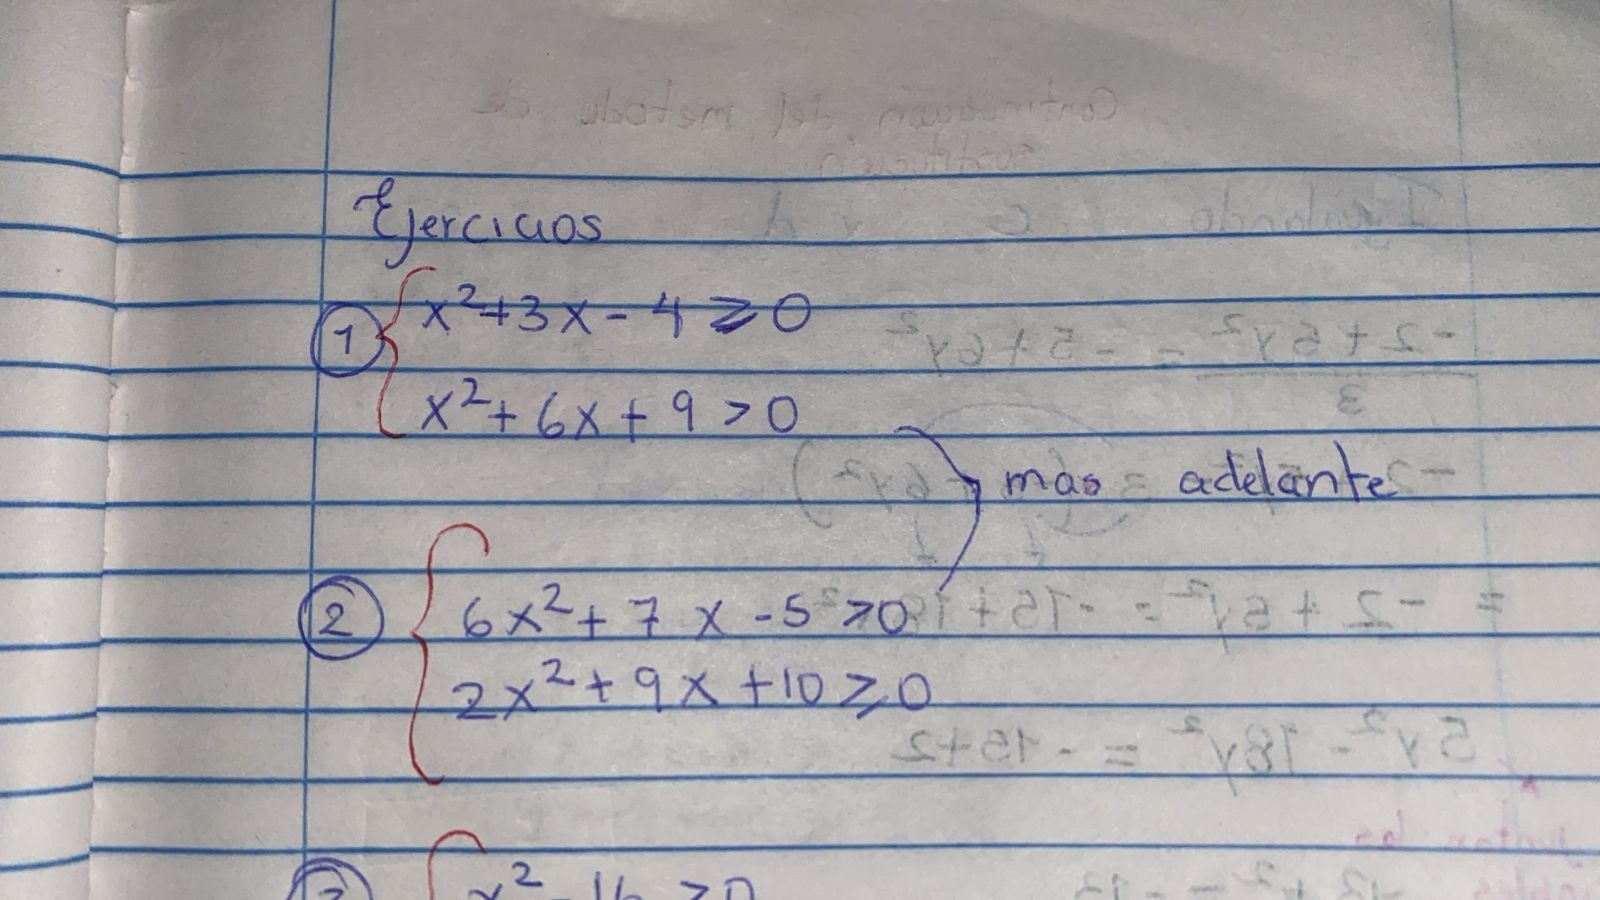 Ejercicios
1 x²+3x-4 ≥ 0
x²+6x+9 > 0
mas adelante
2 6x²+7x-5 >0
2x²+9x+10 ≥ 0
x²-16 >0